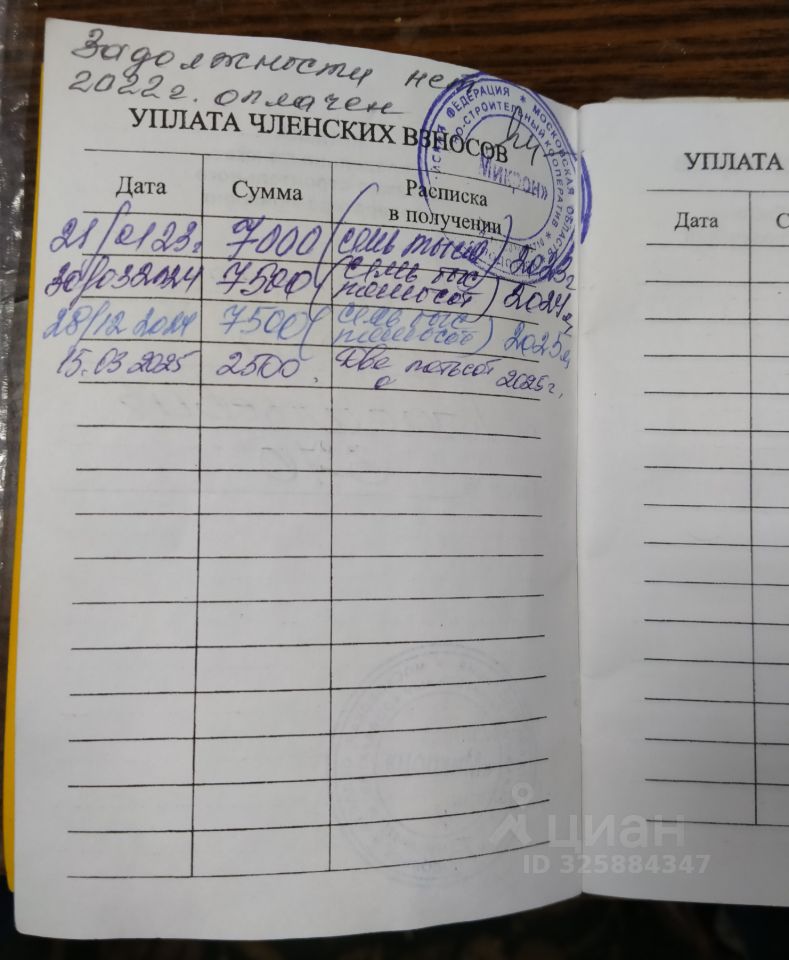 Задолжности нет
2022г. оплачен
УПЛАТА ЧЛЕНСКИХ ВЗНОСОВ
Дата Сумма Расписка в получении
21/01 23г. 7000 (семь тысяч) 2023г
30/03 2024 7500 (семь тыс пятьсот) 2024г,
28/12 2024 7500 (семь тыс пятьсот) 2025г,
15.03 2025 2500. Две пятьсот 2025г.
ФЕДЕРАЦИЯ * МОСКОВСКАЯ ОБЛАСТЬ *
О-СТРОИТЕЛЬНЫЙ КООПЕРАТИВ *
МИКРОН»
УПЛАТА
Дата С
циан
ID 325884347